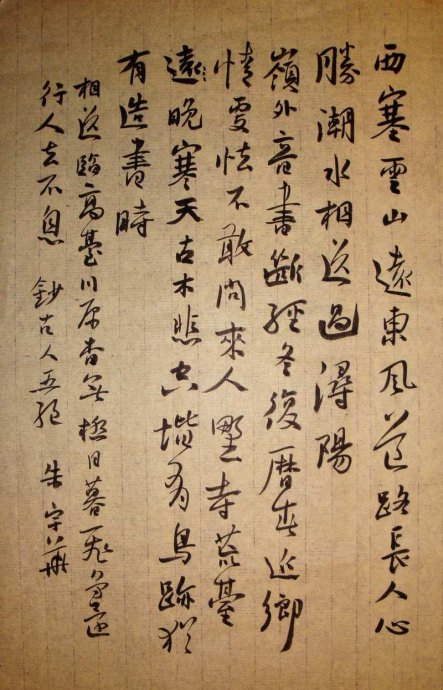 西塞雲山遠東風道路長人心
勝潮水相送過潯陽
嶺外音書斷經冬復曆春近鄉
情更怯不敢問來人野寺荒臺
遠晚寒天古木悲空堦有鳥跡猶
有造書時
相送臨高臺川原杳無極日暮飛鳥還
行人去不息 鈔古人五絕 朱